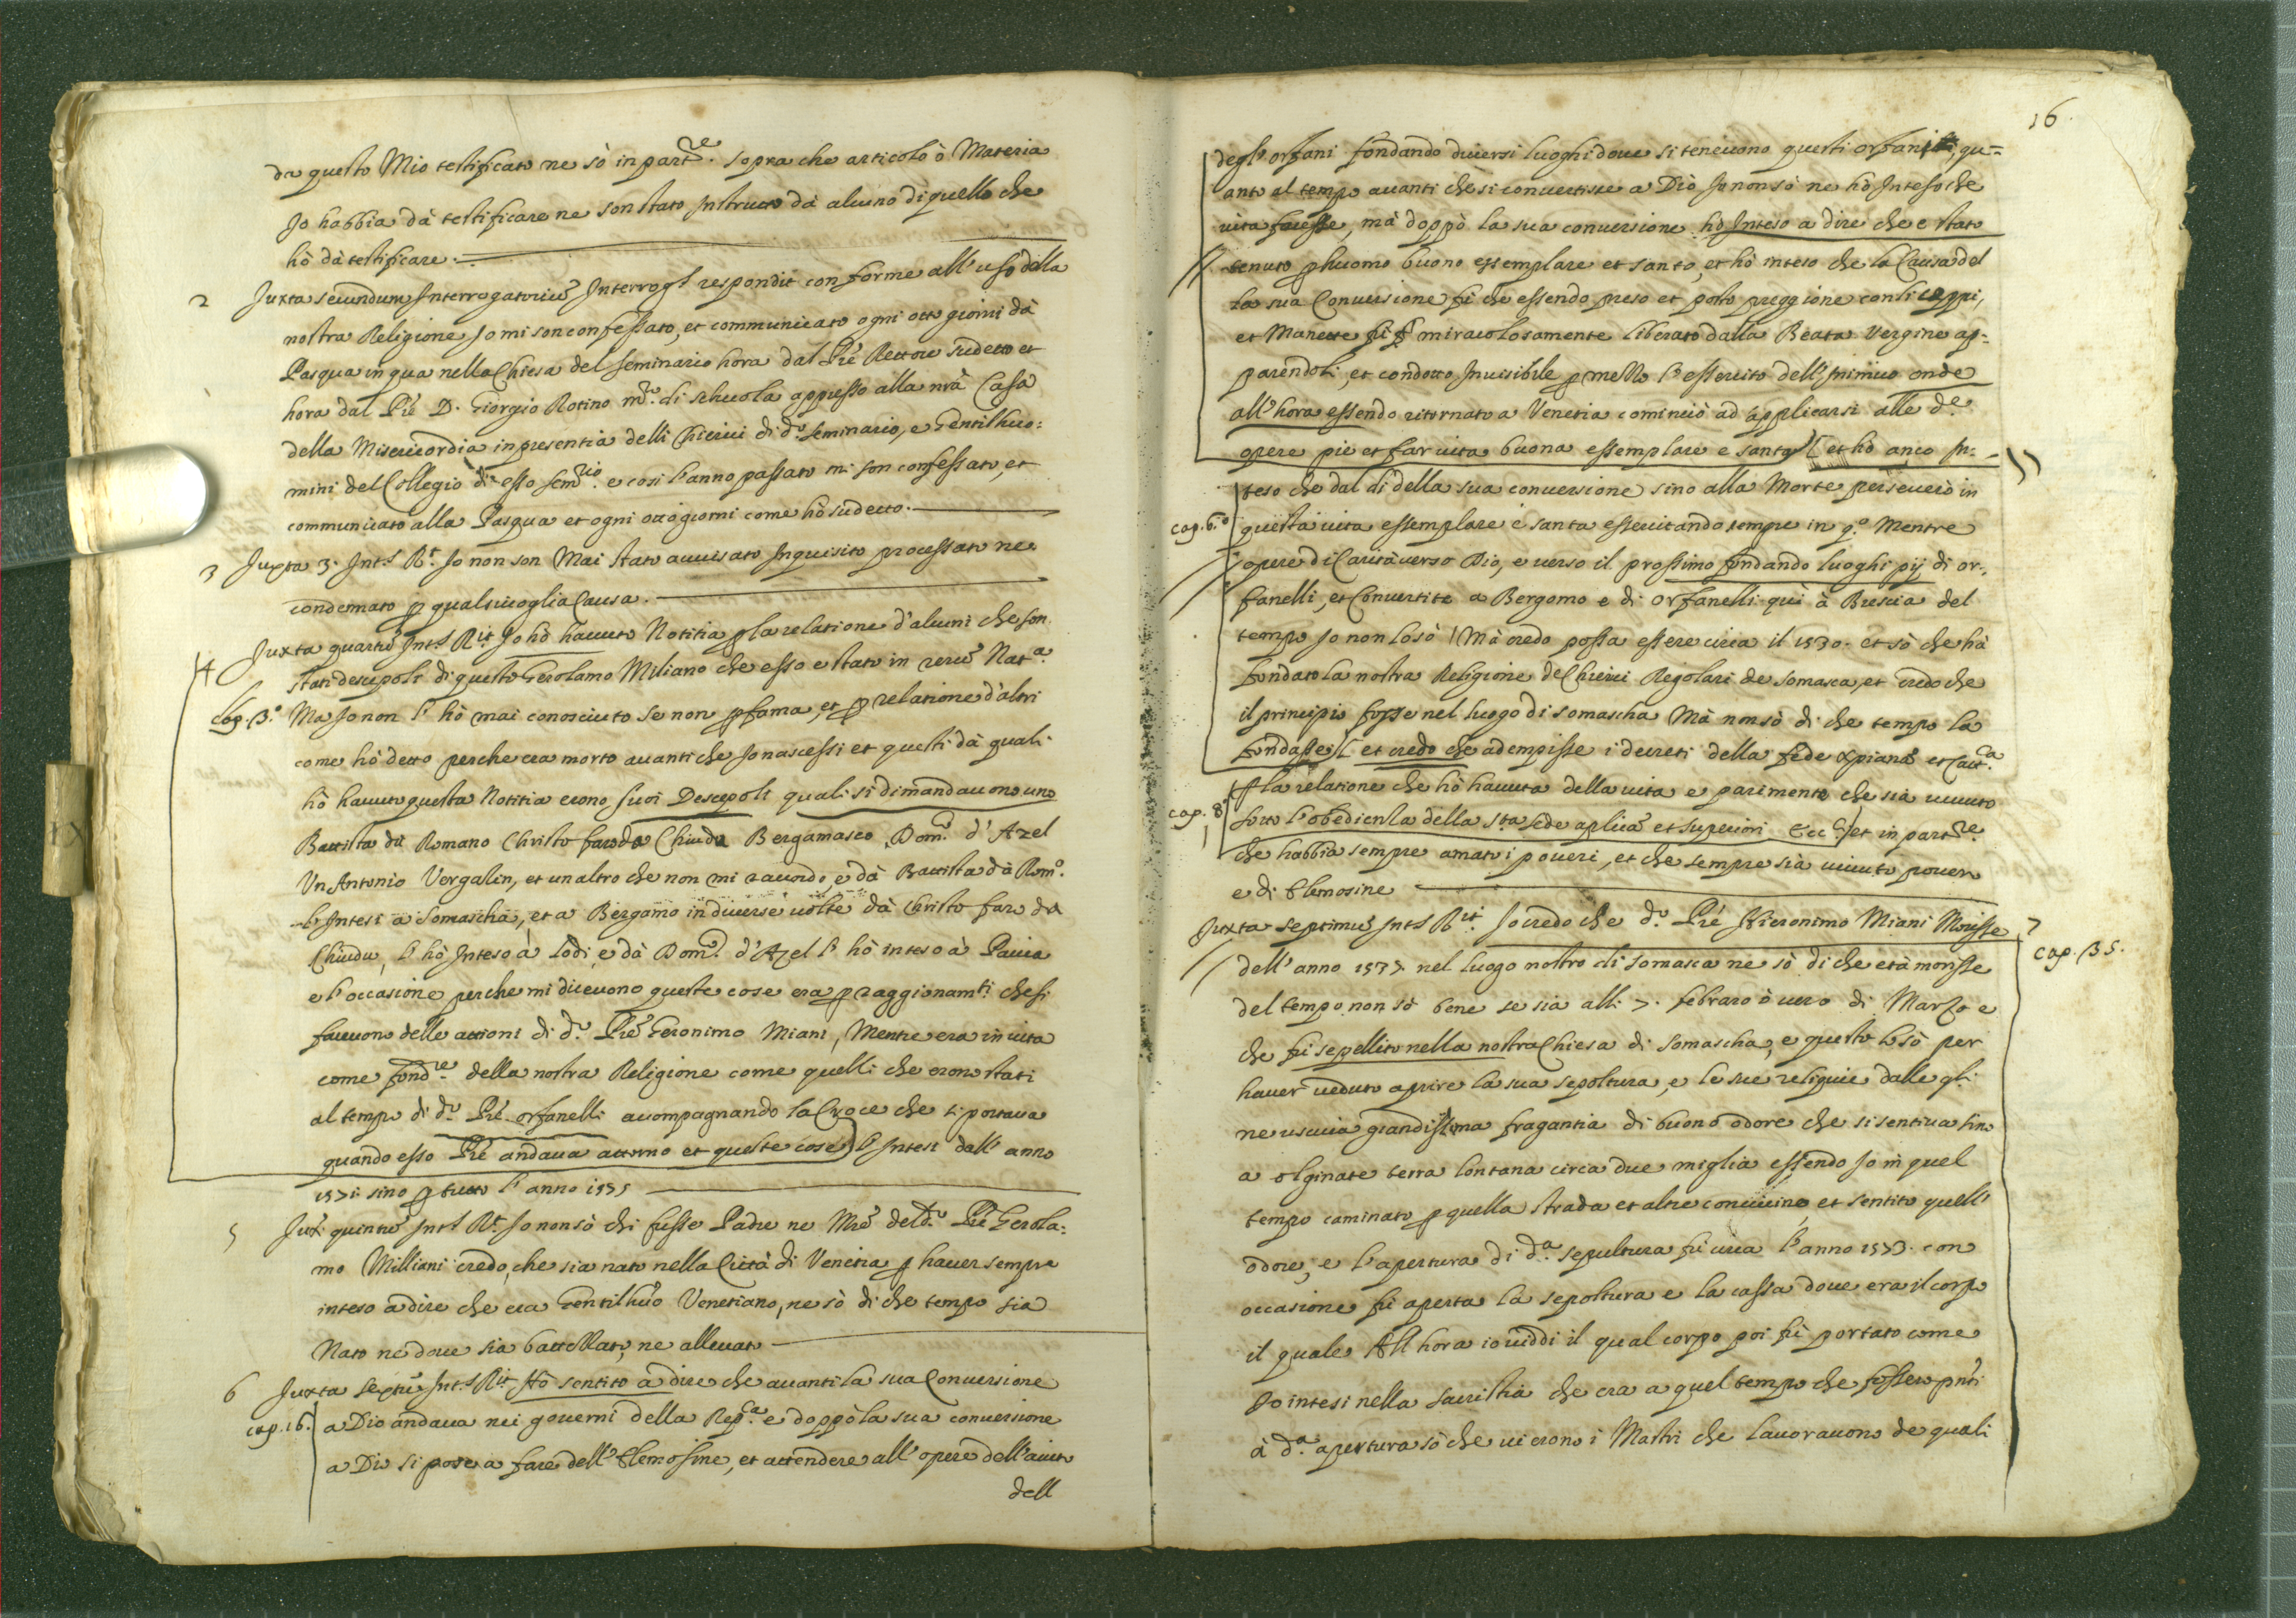 da questo Mio testificato ne sò in part.re sopra che articolo ò Materia
Jo habbia dà testificare ne son stato Instructo dà alcuno di quello che
hò dà testificare.
2 Juxta secundum Interrogatoriũ Interrog.s respondit conforme all'uso della
nostra Religione Jo mi son confessato, et communicato ogni otto giorni dà
Pasqua in qua nella Chiesa del Seminario hora dal Prē Rettore sudetto et
hora dal Prē D. Giorgio Rotino m.ro di schuola appresso alla nrā Casa
della Misericordia in presentia delli Chierici di d.o seminario, e Gentilhuo:
mini del Collegio di esso sem.rio e cosi l'anno passato mi son confessato, et
communicato alla Pasqua et ogni otto giorni come hò sudetto.
3 Juxta 3. Int.s R.t Jo non son Mai stato auuisato Inquisito processato ne
condennato p qualsiuoglia Causa.
4 Juxta quartũ Int.s R.it Jo hò hauuto Notitia p la relatione d'alcuni che son
stati descepoli di questo Gerolamo Miliano che esso e stato in rerũ Nat.a
cap. 3.o Ma Jo non l'hò mai conosciuto se non p fama, et p relatione d'altri
come hò detto perche era morto auanti che Jo nascessi et questi dà quali
hò hauuto questa Notitia erono suoi Descepoli quali si dimandauono uno
Battista dà Romano Christoforo da Chiudu Bergamasco, Dom.co d'Azel
Un Antonio Vergalin, et un altro che non mi raccordo, e dà Battista dà Rom.o
l'Intesi a Somascha, et a Bergamo in diuerse uolte dà Christofaro da
Chiudu, l'hò Inteso à Lodi, e dà Dom.co d'Azel l'hò inteso à Pauia
e l'occasione perche mi diceuono queste cose era p raggionam.ti che si
faceuono delle attioni di d.o Prē Geronimo Miani, Mentre era in uita
come fond.re della nostra Religione come quelli che erono stati
al tempo di d.o Prē orfanelli accompagnando la Croce che si portaua
quando esso Prē andaua attorno et queste cose l'Intesi dall'anno
1571 sino p tutto l'anno 1575
5 Jux.t quintũ Int.s R.t Jo non sò chi fusse Padre ne Mrē del d.o Prē Gerola:
mo Milliani credo, che sia nato nella Città di Venetia p hauer sempre
inteso à dire che era Gentilhuō Venetiano, ne sò di che tempo sia
Nato ne doue sia battezzato, ne alleuato
6 Juxta sextũ Int.s R.it Hò sentito à dire che auanti la sua Conuersione
cap. 16. a Dio andaua nei gouerni della Rep.ca e doppò la sua conuersione
a Dio si pose a fare dell'Elemosine, et attendere all'opere dell'aiuto
dell
16.
degl'orfani fondando diuersi luoghi doue si teneuono questi orfani, qu=
anto al tempo auanti che si conuertisse a Diò Jo non sò ne hò Inteso che
uita facesse, mà doppò la sua conuersione hò Inteso a dire che e stato
tenuto p huomo buono essemplare et santo, et hò inteso che la Causa del
la sua Conuersione fù che essendo preso et posto preggione con li ceppi,
et Manette fù miracolosamente liberato dalla Beata Vergine ap=
parendoli, et condotto Inuisibile p mezzo l'essercito dell'Inimico onde
all'hora essendo ritornato a Venetia cominciò ad applicarsi alle d.e
opere pie et far uita buona essemplare e santa et hò anco In=
teso che dal dì della sua conuersione sino alla Morte perseuerò in
cap. 6.o questa uita essemplare è santa essercitando sempre in q.o Mentre
opere di Carità uerso Dio, e uerso il prossimo fondando luoghi pij di or=
fanelli, et Conuertite a Bergomo e di orfanelli quì à Brescia del
tempo Jo non lo sò Mà credo possa essere circa il 1530. et sò che hà
fondato la nostra Religione de Chierici Regolari de Somasca, et credo che
il principio fosse nel luogo di somascha Mà non sò di che tempo la
fondasse et credo che adempisse i decreti della fede Xpianā et Catt.ca
cap. 8.o p la relatione che hò hauuta della uita e parimente che sià uiuuto
sotto l'obedienza della s.ta sede aplicā et superiori Ecc.ci et in part.re
che habbia sempre amato i poueri, et che sempre sià uiuuto pouero
e di Elemosine
Juxta septimũ Int.s R.it Jo credo che d.o Prē Hieronimo Miani Morisse 7
cap. 35.
dell'anno 1537 nel luogo nostro di Somasca ne sò di che età morisse
del tempo non sò bene se sia alli 7. febraro ò uero di Marzo e
che fù sepellito nella nostra Chiesa di Somascha, e questo lo sò per
hauer ueduto aprire la sua sepoltura, e le sue reliquie dalle q.li
ne usciua grandissima fragantia di buono odore che si sentiua sino
a olginate terra lontana circa due miglia essendo Jo in quel
tempo caminato p quella strada et altre conuicine, et sentito quell'
odore, e l'apertura di d.a sepultura fù circa l'anno 1573. con
occasione fù aperta la sepoltura e la cassa doue era il corpo
il quale All'hora io uiddi il qual corpo poi fù portato come
Jo intesi nella sacristia che era a quel tempo che fossero pnti
à d.a apertura sò che ui erono i Mastri che lauorauono de quali